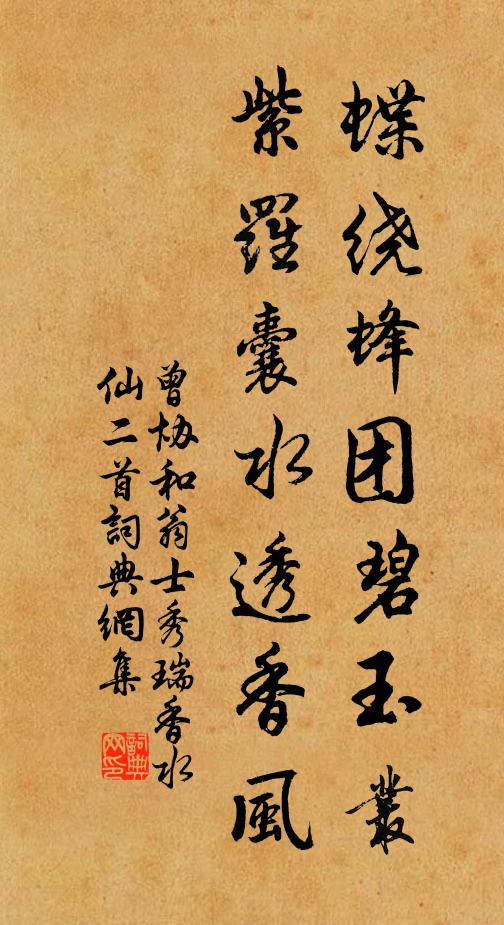 蝶绕蜂团碧玉叢
紫羅囊水透香風
曾协和翁士秀瑞香水
仙二首詞典網集
詞典
网印